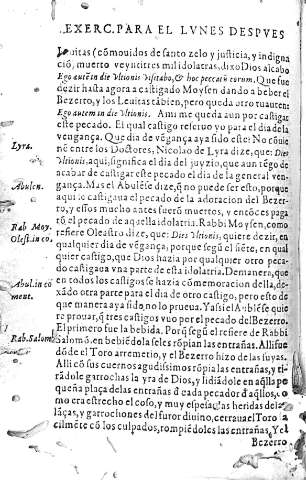 EXERC. PARA EL LVNES DESPVES
Leuitas (cõmouidos de santo zelo y justicia, y indigna
ciõ, muerto veyntitres mil idolatras, dixo Dios al cabo
Ego autẽ in die Vltionis visitabo, & hoc peccatũ eorum. Que fue
dezir hasta agora a castigado Moysen dando a beber el
Bezerro, y los Leuitas tãbien, pero queda otro tuautem:
Ego autem in die Vltionis. Ami me queda aun por castigar
este pecado. El qual castigo reseruo yo para el dia de la
vengança. Que dia de vẽgança aya sido este? No cõuie
Lyra.
nẽ entre los Doctores, Nicolao de Lyra dize, que: Dies
Vltionis, aqui, significa el dia del juyzio, que aun rẽgo de
acabar de castigar este pecado el dia de la general ven-
Abulen.
gança. Mas el Abulẽse dize, q̃ no puede ser esto, porque
aqui lo castigaua el pecado de la adoracion del Bezer-
ro, y essos mucho antes fuerõ muertos, y entõces paga
Rab Moy.
rõ el pecado de aquella idolatria. Rabbi Moysen, como
Olest. in co.
refiere Oleastro dize, que: Dies Vltionis, quiere dezir, en
qualquier dia de vẽgança; porque segũ el siẽte, en qual
quier castigo, que Dios hazia por qualquier otro peca-
do castigaua vna parte de esta idolatria. Demanera, que
Abul. in cõ
en todos los castigos se hazia cõmemoracion della, de-
ment.
xado otra parte para el dia de otro castigo, pero esto de
que manera aya sido no lo prueua. Y assi el Abulẽse quie
re prouar, q̃ tres castigos vuo por el pecado del Bezerro.
El primero fue la bebida. Porq̃ segũ el refiere de Rabbi
Rab. Salom.
Salomõ, en bebiẽdola seles rõpian las entrañas. Alli fue
dõde el Toro arremetio, y el Bezerro hizo de las suyas.
Alli cõ sus cuernos agudissimos rõpia las entrañas, y ti-
rãdole garrochas la yra de Dios, y lidiãdole en aq̃lla pe
queña plaça de las entrañas d̃ cada pecador d̃ aq̃llos, co
mo era estrecho el coso, y muy espessas las heridas de la
lãças, y garrochones del furor diuino, cerraua el Toro a
cilmẽte cõ los culpados, rompiẽdoles las entrañas. Y el
Bezerro